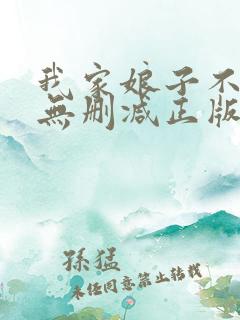 我家娘子不
無删减正版
孫猛
未任同意禁止转载